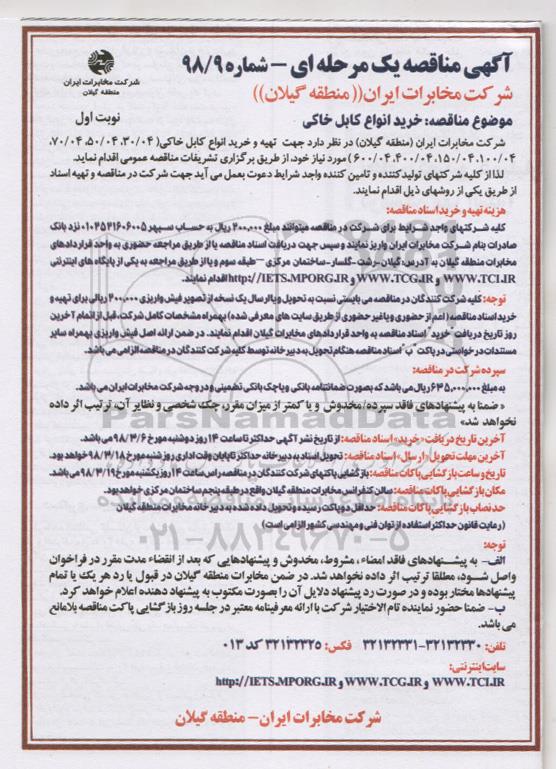 شرکت مخابرات ایران
منطقه گیلان
آگهی مناقصه یک مرحله ای - شماره ۹۸/۹
شرکت مخابرات ایران((منطقه گیلان))
موضوع مناقصه: خرید انواع کابل خاکی
نوبت اول
شرکت مخابرات ایران (منطقه گیلان) در نظر دارد جهت تهیه و خرید انواع کابل خاکی( ۳۰/۰۴، ۵۰/۰۴، ۷۰/۰۴،
۱۰۰/۰۴، ۱۵۰/۰۴، ۴۰۰/۰۴، ۶۰۰/۰۴) مورد نیاز خود، از طریق برگزاری تشریفات مناقصه عمومی اقدام نماید.
لذا از کلیه شرکتهای تولیدکننده و تامین کننده واجد شرایط دعوت بعمل می آید جهت شرکت در مناقصه و تهیه اسناد
از طریق یکی از روشهای ذیل اقدام نمایند.
هزینه تهیه و خرید اسناد مناقصه:
کلیه شرکتهای واجد شرایط برای شرکت در مناقصه میتوانند مبلغ ۲۰۰,۰۰۰ ریال به حساب سپهر ۰۱۰۴۵۲۱۶۰۶۰۰۵ نزد بانک
صادرات بنام شرکت مخابرات ایران واریز نمایند و سپس جهت دریافت اسناد مناقصه یا از طریق مراجعه حضوری به واحد قراردادهای
مخابرات منطقه گیلان به آدرس: گیلان -رشت -گلسار-ساختمان مرکزی –طبقه سوم و یا از طریق مراجعه به یکی از پایگاه های اینترنتی
WWW.TCI.IR و WWW.TCG.IR و http://IETS.MPORG.IR اقدام نمایند.
توجه: کلیه شرکت کنندگان در مناقصه می بایستی نسبت به تحویل و یا ارسال یک نسخه از تصویر فیش واریزی ۲۰۰,۰۰۰ ریالی برای تهیه و
خرید اسناد مناقصه (اعم از حضوری و یا غیر حضوری از طریق سایت های معرفی شده) بهمراه مشخصات کامل شرکت، قبل از اتمام آخرین
روز تاریخ دریافت "خرید" اسناد مناقصه به واحد قراردادهای مخابرات گیلان اقدام نمایند. در ضمن ارائه اصل فیش واریزی بهمراه سایر
مستندات درخواستی در پاکت "ب" اسناد مناقصه هنگام تحویل به دبیرخانه توسط کلیه شرکت کنندگان در مناقصه الزامی می باشد.
سپرده شرکت در مناقصه:
به مبلغ ۶۳۵,۰۰۰,۰۰۰ ریال می باشد که بصورت ضمانتنامه بانکی و یا چک بانکی تضمینی و در وجه شرکت مخابرات ایران می باشد.
« ضمنا به پیشنهادهای فاقد سپرده/مخدوش و یا کمتر از میزان مقرر، چک شخصی و نظایر آن، ترتیب اثر داده
نخواهد شد»
آخرین تاریخ دریافت «خرید» اسناد مناقصه: از تاریخ نشر آگهی حداکثر تا ساعت ۱۴ روز دوشنبه مورخ ۹۸/۳/۶ می باشد.
آخرین مهلت تحویل «ارسال» اسناد مناقصه: تحویل اسناد به دبیرخانه حداکثر تا پایان وقت اداری روز شنبه مورخ ۹۸/۳/۱۸ خواهد بود.
تاریخ و ساعت بازگشایی پاکات مناقصه: بازگشایی پاکتهای شرکت کنندگان در مناقصه راس ساعت ۱۴ روز یکشنبه مورخ ۹۸/۳/۱۹ می باشد.
مکان بازگشایی پاکات مناقصه: سالن کنفرانس مخابرات منطقه گیلان واقع در طبقه پنجم ساختمان مرکزی خواهد بود.
حد نصاب بازگشایی پاکات مناقصه: حداقل دو پاکت رسیده و تحویل داده شده به دبیرخانه مخابرات منطقه گیلان
( رعایت قانون حداکثر استفاده از توان فنی و مهندسی کشور الزامی است)
توجه:
الف- به پیشنهادهای فاقد امضاء ، مشروط، مخدوش و پیشنهادهایی که بعد از انقضاء مدت مقرر در فراخوان
واصل شود، مطلقا ترتیب اثر داده نخواهد شد. در ضمن مخابرات منطقه گیلان در قبول یا رد هر یک یا تمام
پیشنهادها مختار بوده و در صورت رد پیشنهاد دلایل آن را بصورت مکتوب به پیشنهاد دهنده اعلام خواهد کرد.
ب- ضمنا حضور نماینده تام الاختیار شرکت با ارائه معرفینامه معتبر در جلسه روز بازگشایی پاکت مناقصه بلامانع
می باشد.
تلفن: ۳۲۱۳۲۳۳۰-۳۲۱۳۲۳۳۱ فکس: ۳۲۱۳۲۳۲۵ کد ۰۱۳
سایت اینترنتی:
WWW.TCI.IR و WWW.TCG.IR و http://IETS.MPORG.IR
شرکت مخابرات ایران- منطقه گیلان
ParsNamadData
۰۲۱-۸۸۳۴۹۶۷۰-۵